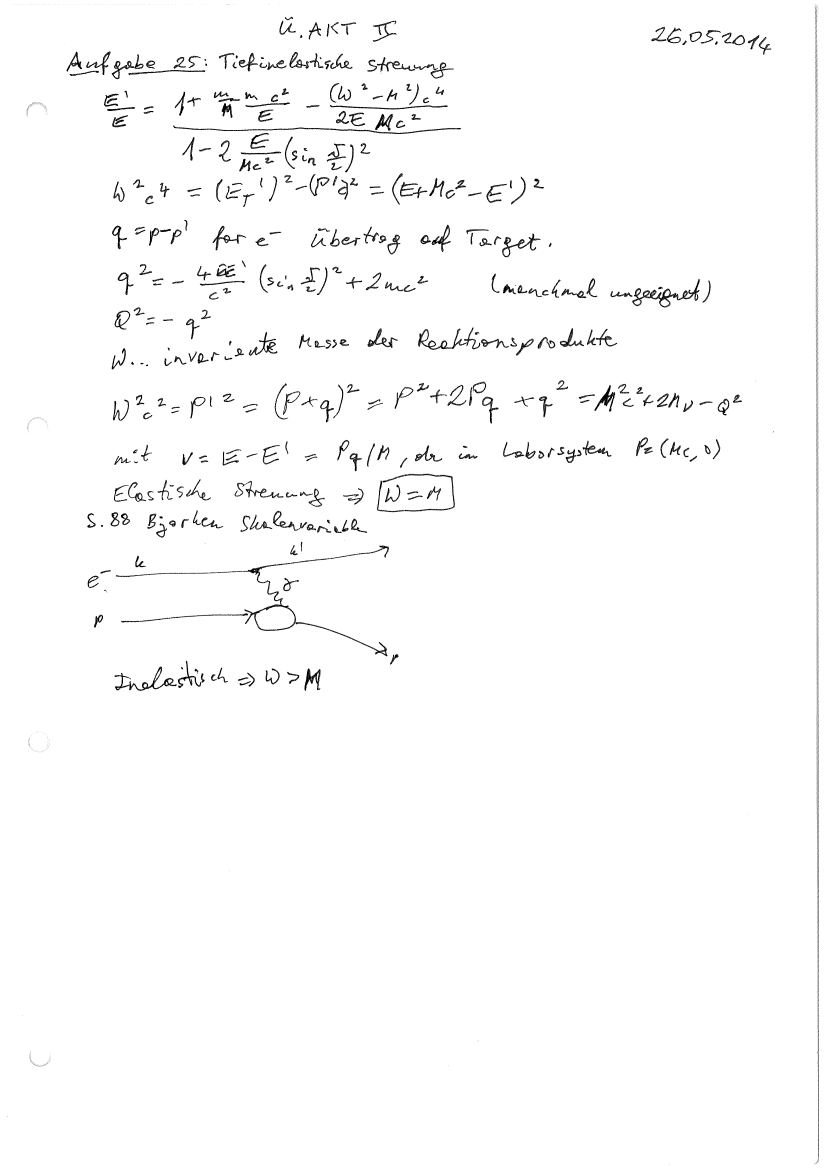 Ü. AKT II
26.05.2014
Aufgabe 25: Tiefinelastische Streuung
E'/E = (1 + m/M · m c²/E − (W² − M²)c⁴/(2E Mc²)) / (1 − 2 E/(Mc²) (sin ϑ/2)²)
W²c⁴ = (E_T')² − (P'c)² = (E + Mc² − E')²
q = p − p' for e⁻ Übertrag auf Target.
q² = − 4EE'/c² (sin ϑ/2)² + 2mc² (manchmal ungeeignet)
Q² = − q²
W... invariante Masse der Reaktionsprodukte
W²c² = P'² = (P + q)² = P² + 2Pq + q² = M²c² + 2Mν − Q²
mit ν = E − E' = Pq/M, da im Laborsystem P = (Mc, 0)
Elastische Streuung ⇒ W = M
S. 88 Bjorken Skalenvariable
k k'
e⁻ γ
p
Inelastisch ⇒ W > M